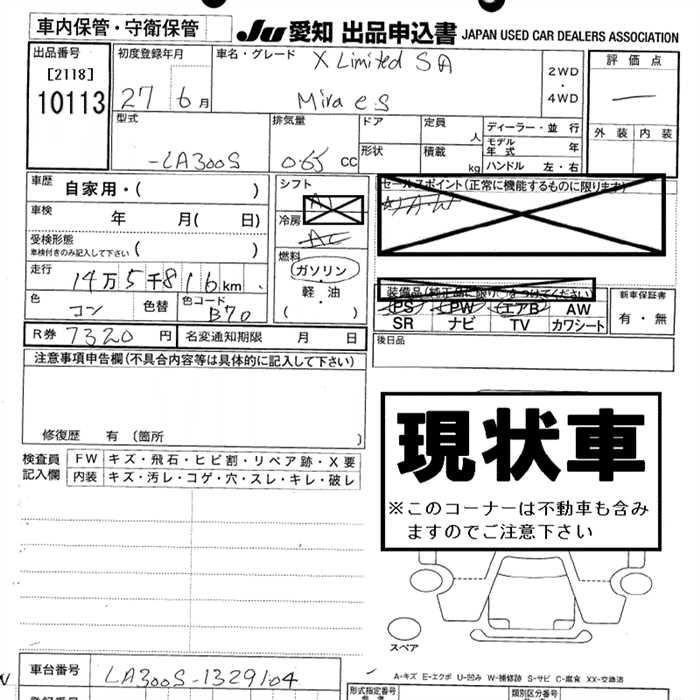 車内保管・守衛保管
JU 愛知 出品申込書 JAPAN USED CAR DEALERS ASSOCIATION
出品番号
[2118]
10113
初度登録年月
27 6月
車名・グレード
X Limited SA
Mira es
2WD
・
4WD
評価点
—
外装 内装
型式
-LA300S
排気量
0.65 cc
ドア
形状
定員
人
積載
kg
ディーラー・並行
モデル
年式 年
ハンドル 左・右
車歴
自家用・( )
車検
年 月( 日)
受検形態
車検付きのみ記入して下さい ( )
走行
14万5千816km
色
コン
色替
色コード
B70
シフト
AT
冷房
AC
燃料
ガソリン
・
軽・油
・
( )
セールスポイント(正常に機能するものに限ります)
A/A・W
装備品(純正品に限り○をつけてください)
PS PW エアB AW
SR ナビ TV カワシート
新車保証書
有・無
R券 7320円
名変通知期限 月 日
後日品
注意事項申告欄(不具合内容等は具体的に記入して下さい)
修復歴 有 〔箇所 〕
検査員
記入欄
FW キズ・飛石・ヒビ割・リペア跡・X要
内装 キズ・汚レ・コゲ・穴・スレ・キレ・破レ
現状車
※このコーナーは不動車も含み
ますのでご注意下さい
スペア
車台番号
LA300S-1329104
A-キズ E-エクボ U-凹み W-補修跡 S-サビ C-腐食 XX-交換済
形式指定番号
類別区分番号